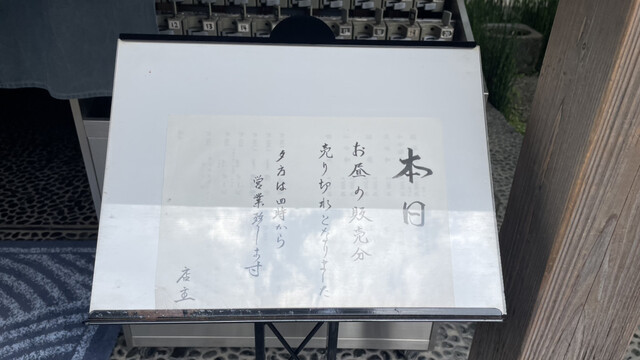 本日
お昼の販売分
売り切れとなりました
夕方は四時から
営業致します
店主